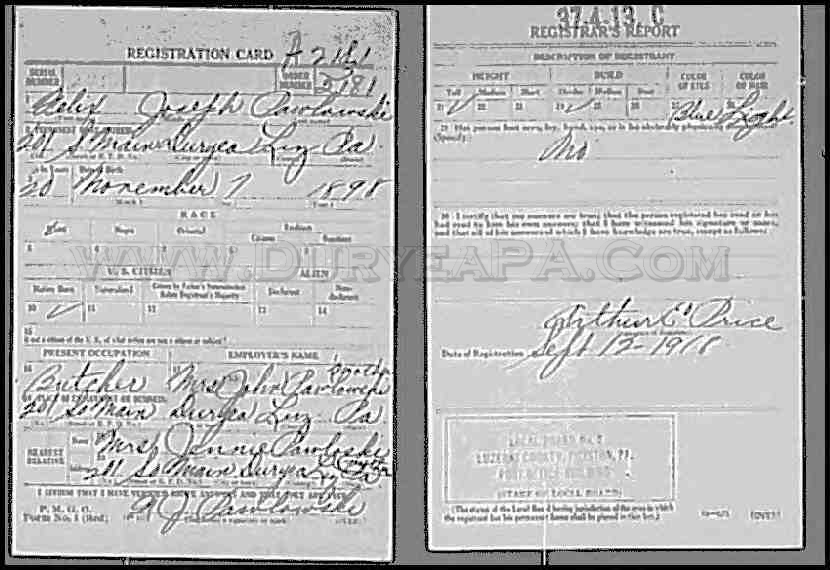 REGISTRATION CARD A 2181
SERIAL NUMBER ORDER NUMBER 2181
Joseph Pawlowski
201 S Main Duryea Luz Pa
20 November 7 1898
RACE
White Negro Oriental Indian
Citizen
5 6 7 8 9
U. S. CITIZEN ALIEN
Native Born Naturalized Citizen by Father's Naturalization Before Registrant's Majority Declarant Non-declarant
10 ✓ 11 12 13 14
15
If not a citizen of the U. S., of what nation are you a citizen or subject?
PRESENT OCCUPATION EMPLOYER'S NAME
Butcher Mrs John Pawlowski
201 So Main Duryea Luz Pa
NEAREST RELATIVE Name Mrs Jennie Pawloski
Address 201 So Main Duryea Luz Pa
I AFFIRM THAT I HAVE VERIFIED ABOVE ANSWERS AND THAT THEY ARE TRUE
P. M. G. O.
Form No. 1 (Red) A J Pawlowski
(Registrant's signature or mark) (OVER)
37-4-13. C
REGISTRAR'S REPORT
DESCRIPTION OF REGISTRANT
HEIGHT BUILD COLOR OF EYES COLOR OF HAIR
Tall Medium Short Slender Medium Stout
21 ✓ 22 23 24 ✓ 25 26 27 Blue 28 Light
29 Has person lost arm, leg, hand, eye, or is he obviously physically disqualified?
(Specify)
No
30 I certify that my answers are true; that the person registered has read or has
had read to him his own answers; that I have witnessed his signature or mark,
and that all of his answers of which I have knowledge are true, except as follows:
www.DuryeaPA.com
Arthur E. Price
Date of Registration Sept 12-1918
LOCAL BOARD NO. 2
LUZERNE COUNTY, PITTSTON, PA.
POST OFFICE BUILDING
(STAMP OF LOCAL BOARD)
(The stamp of the Local Board having jurisdiction of the area in which
the registrant has his permanent home shall be placed in this box.)
(OVER)